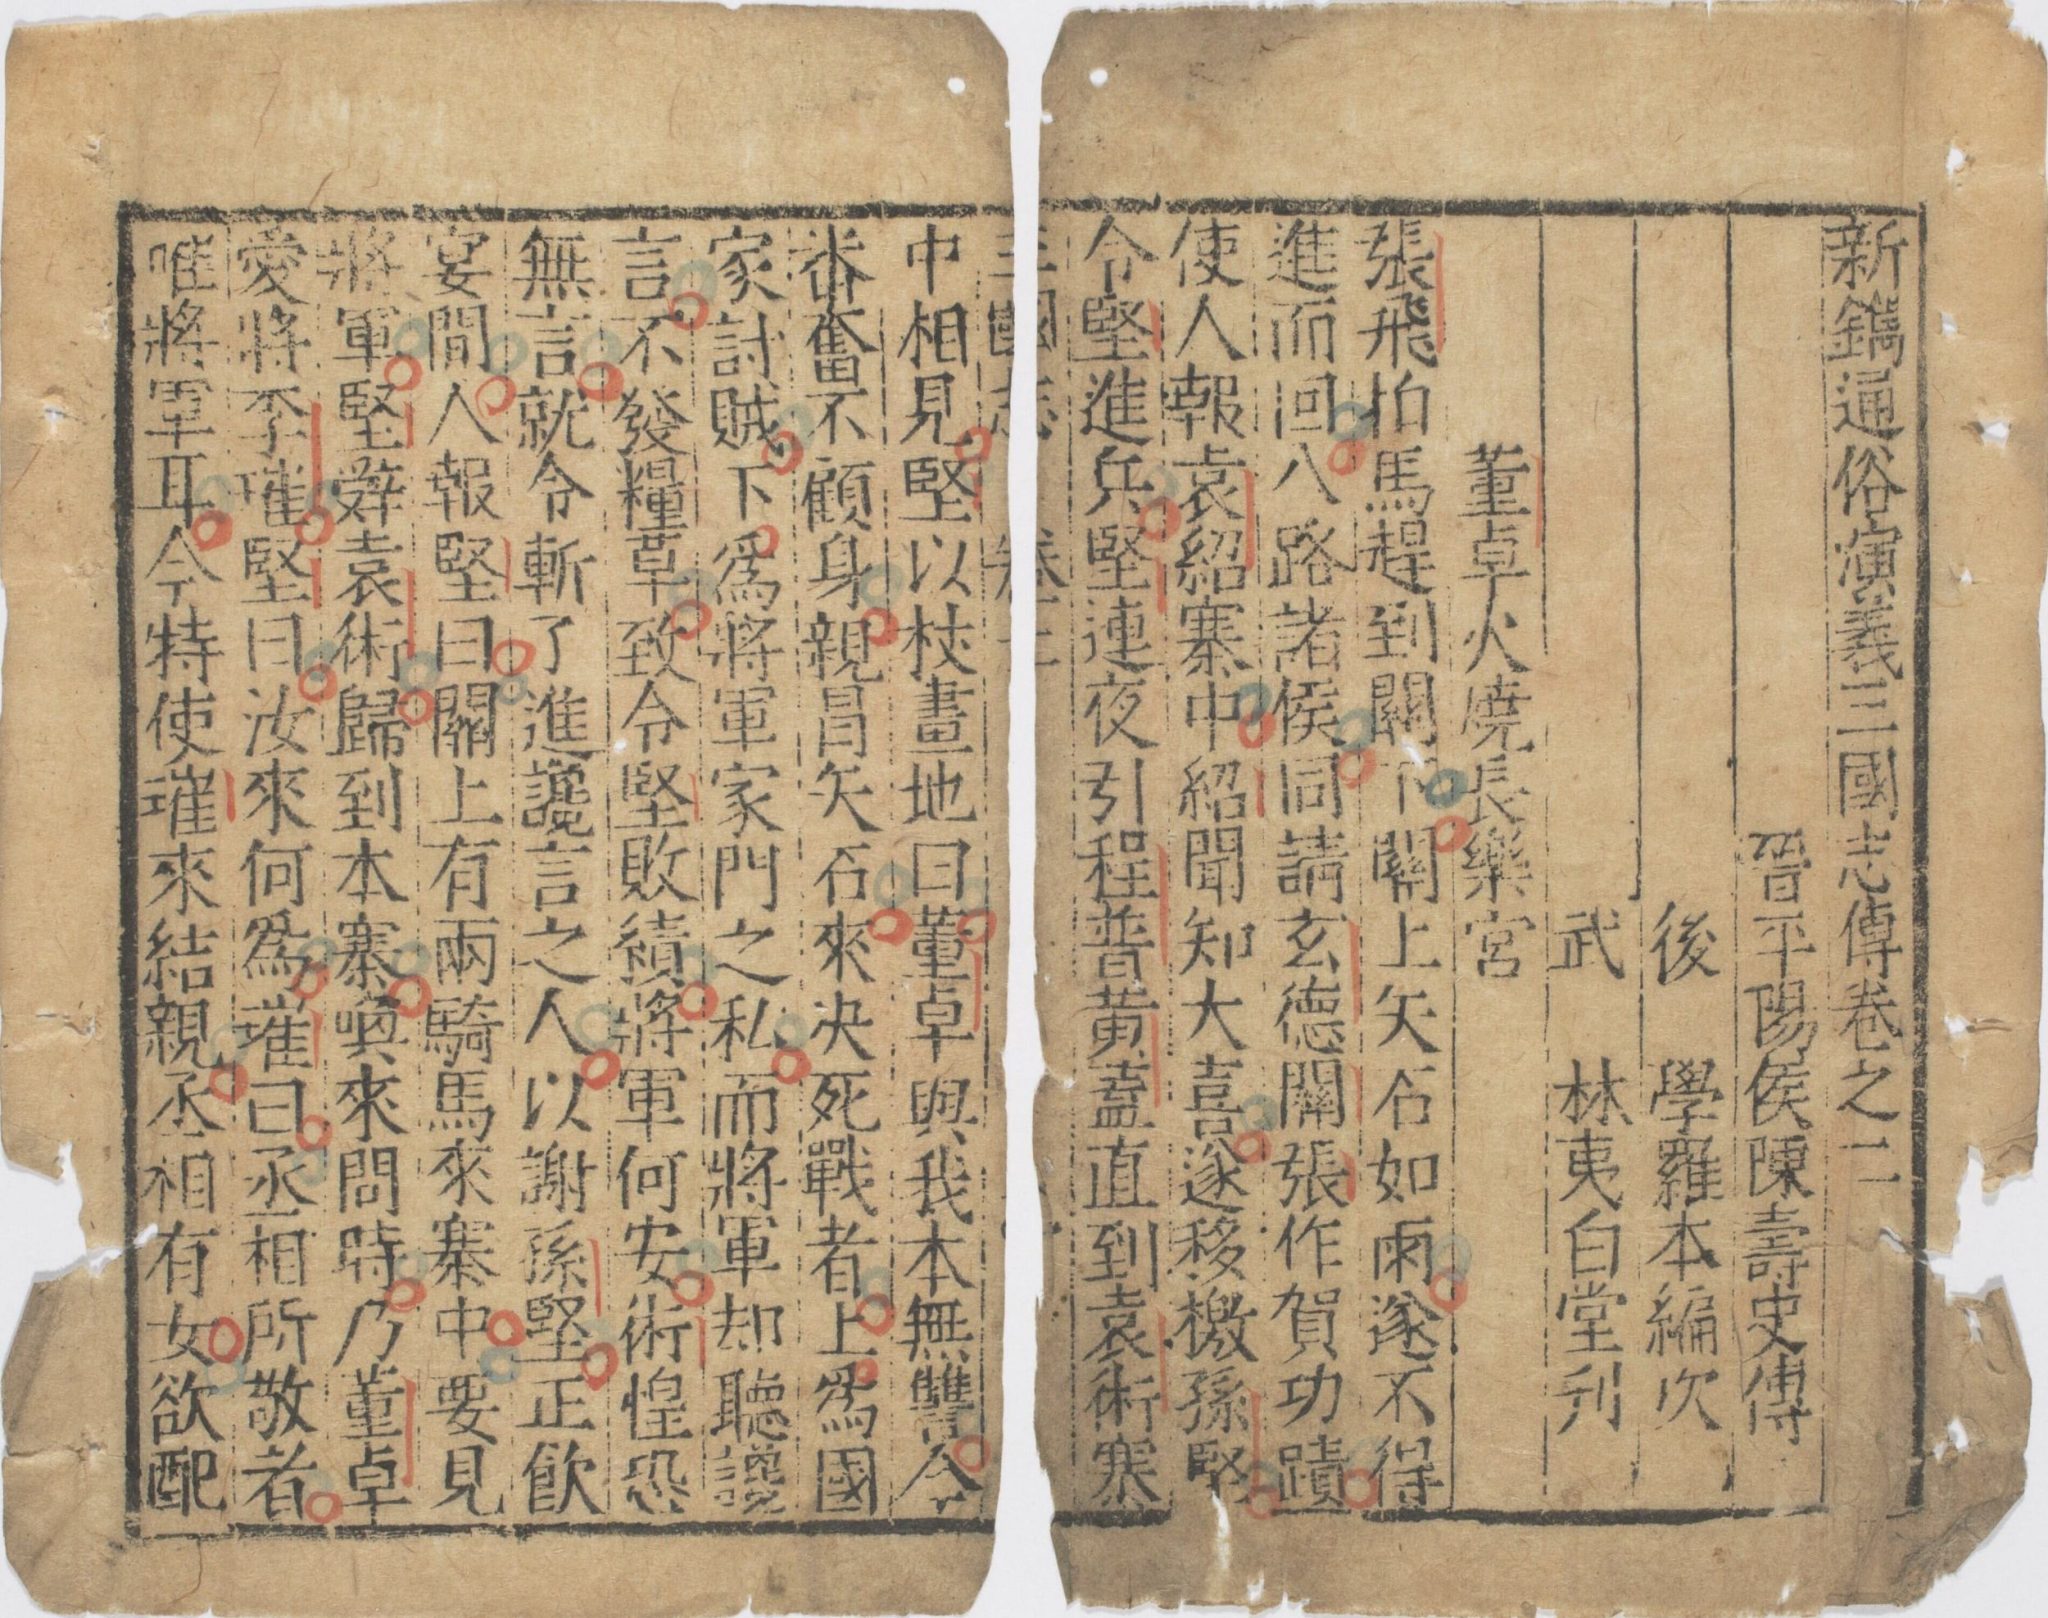 新鐫通俗演義三國志傳卷之二
晉平陽侯陳壽史傳
後學羅本編次
武林夷白堂刋
董卓火燒長樂宮
張飛拍馬趕到關下關上矢石如雨遂不得
進而回八路諸侯同請玄德關張作賀功蹟
使人報袁紹寨中紹聞知大喜遂移檄孫堅
令堅進兵堅連夜引程普黃蓋直到袁術寨
三國志 卷二
中相見堅以杖畫地曰董卓與我本無讐今
畨奮不顧身親冒矢石來决死戰者上爲國
家討賊下爲將軍家門之私而將軍却聽讒
言不發糧草致令堅敗績將軍何安術惶恐
無言就令斬了進讒言之人以謝孫堅正飮
宴間人報堅曰關上有兩騎馬來寨中要見
將軍堅辤袁術歸到本寨喚來問時乃董卓
愛將李㩁堅曰汝來何爲㩁曰丞相所敬者
唯將軍耳今特使㩁來結親丞相有女欲配